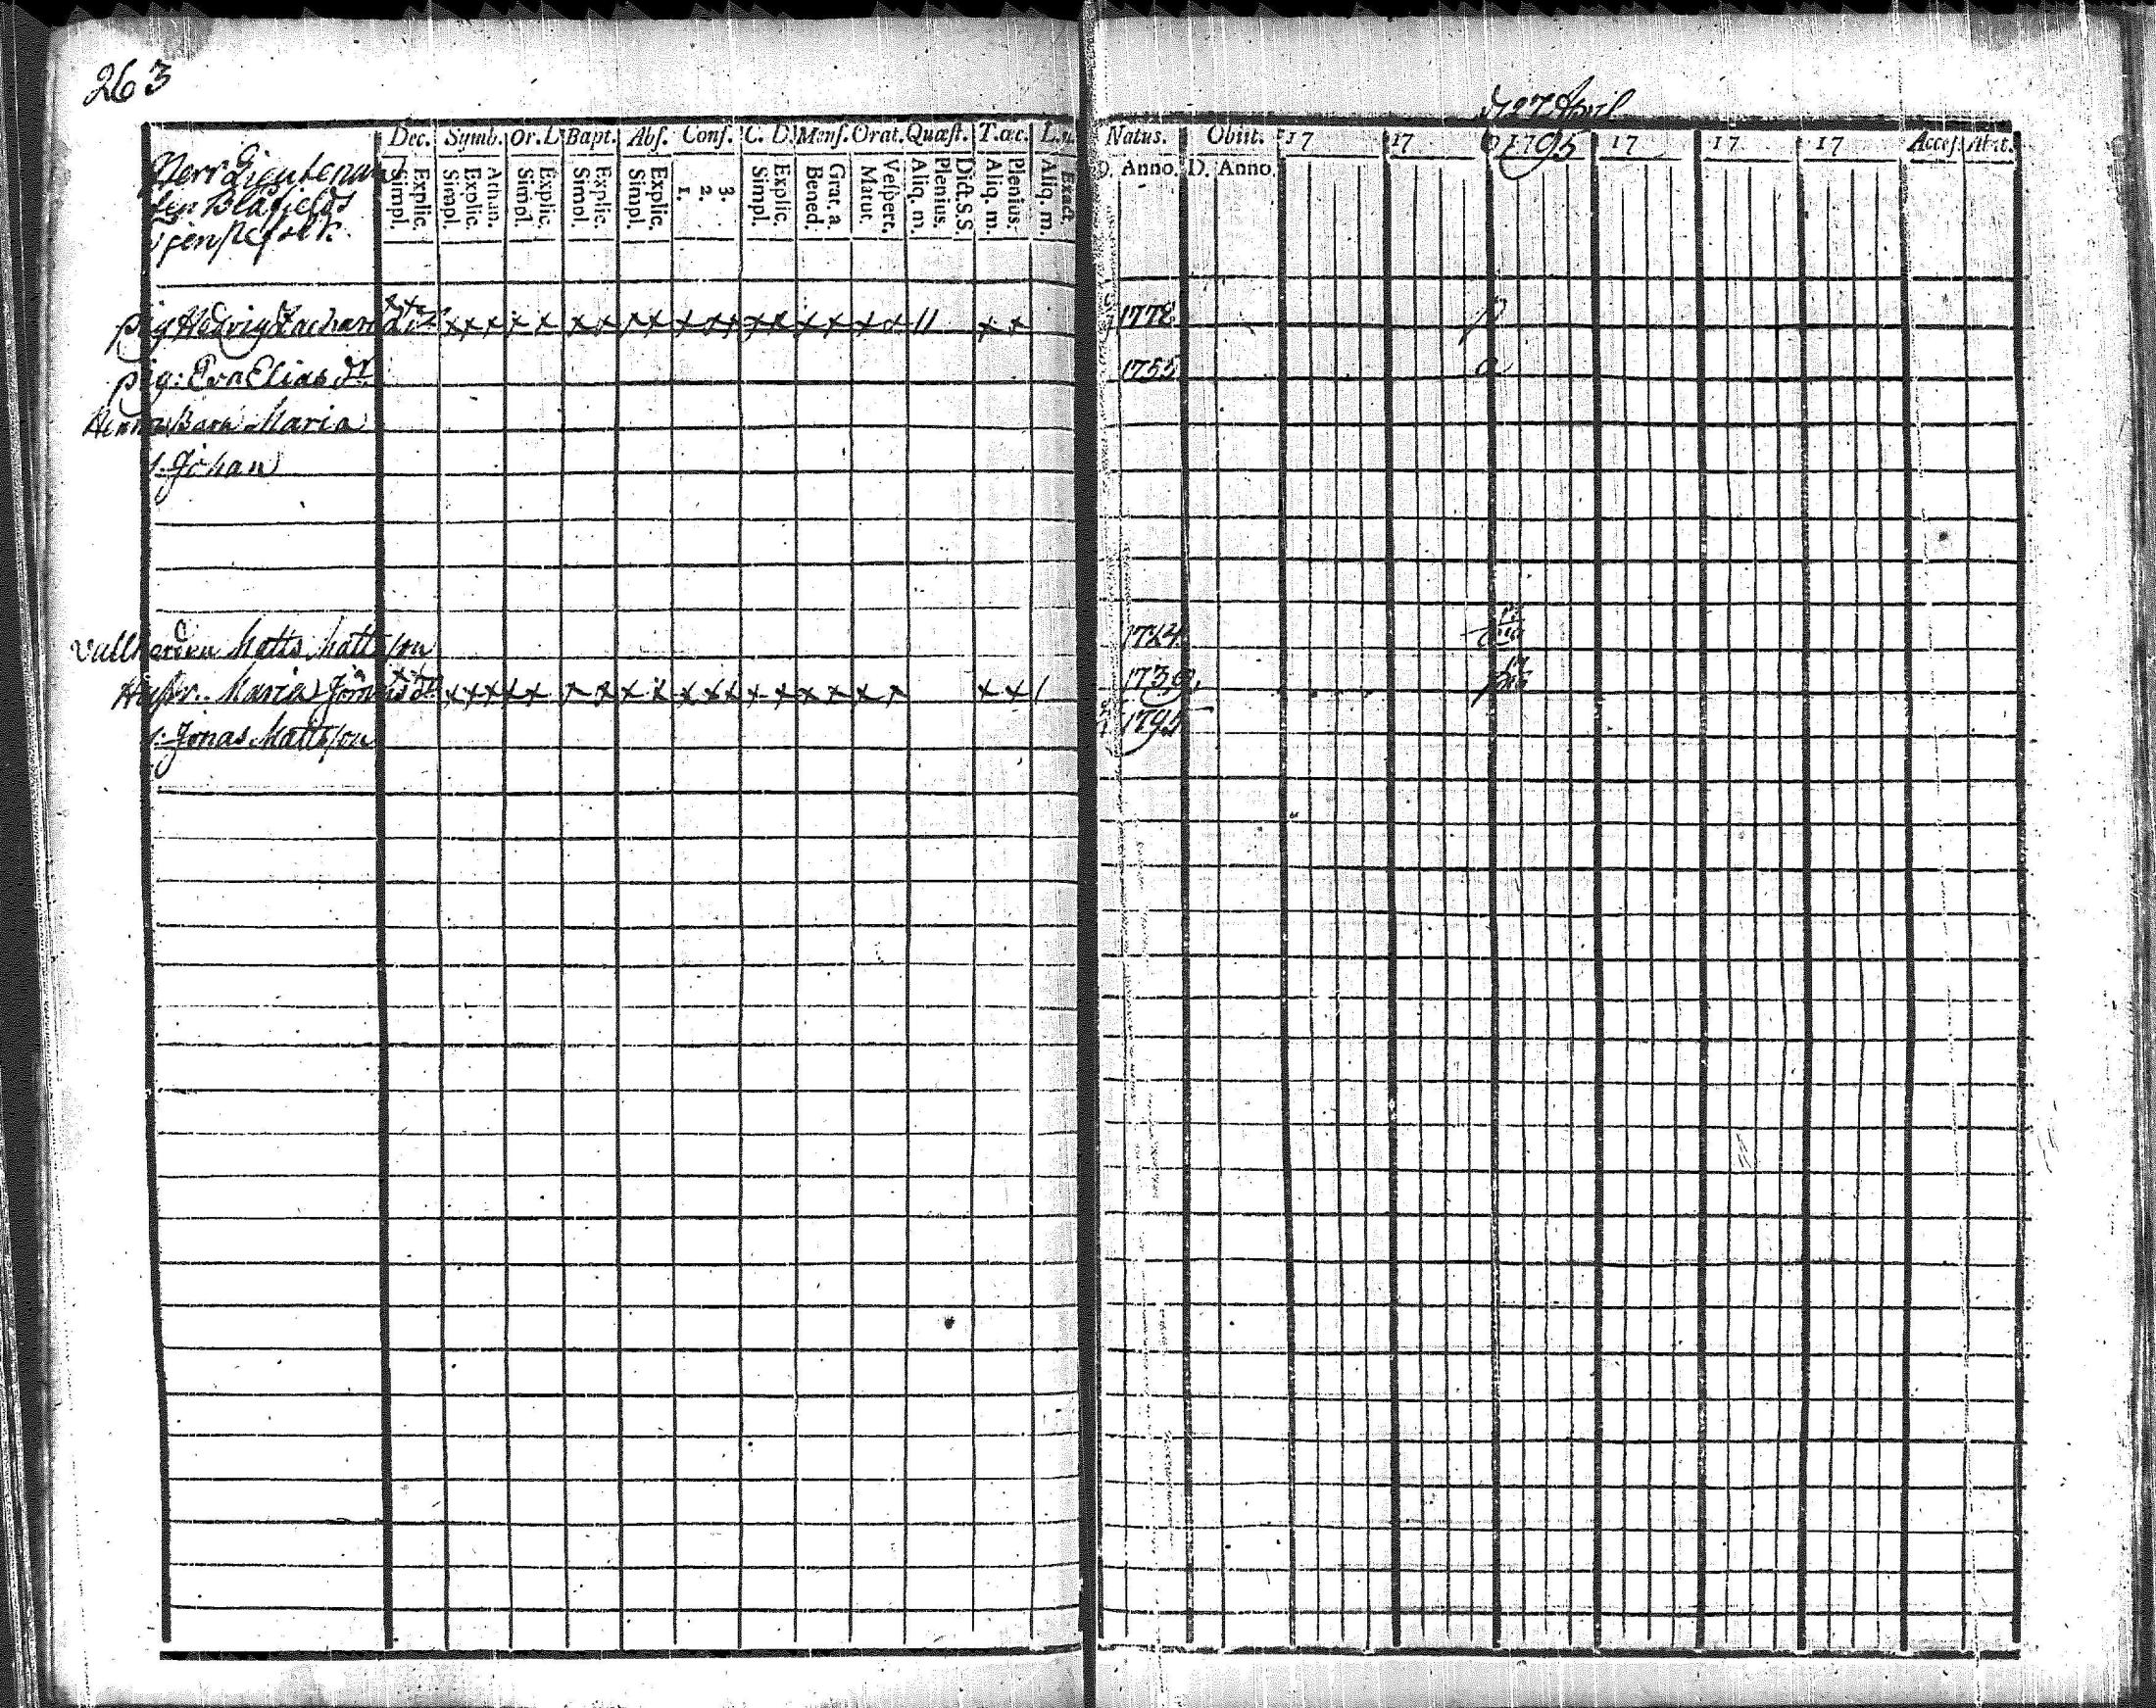 263
d 27 April
Dec. Symb. Or. D Bapt. Abs. Conf. C. D. Mens. Orat. Quæst. T. œc. L.
Natus. Obiit. 17 17 1795 17 17 17 Access. Abit.
Explic. Simpl. Athan. Explic. Simpl. Explic. Simpl. Explic. Simpl. Explic. Simpl. 3. 2. 1. Explic. Simpl. Grat. a Bened. Vespert. Matut. Dict. S.S. Plenius. Aliq. m. Plenius. Aliq. m. Exact. Aliq. m.
D. Anno. D. Anno.
Herr Lieutenant
Blåfjelds
pig Hedvig Zachari dr 1778 p
pig: Eva Elias dr 1755 a
Barn Maria
s. Johan
Vallherden Matts Mattsson 1724
Hustr. Maria Jönas dr 1739
s. Jonas Mattsson 1795